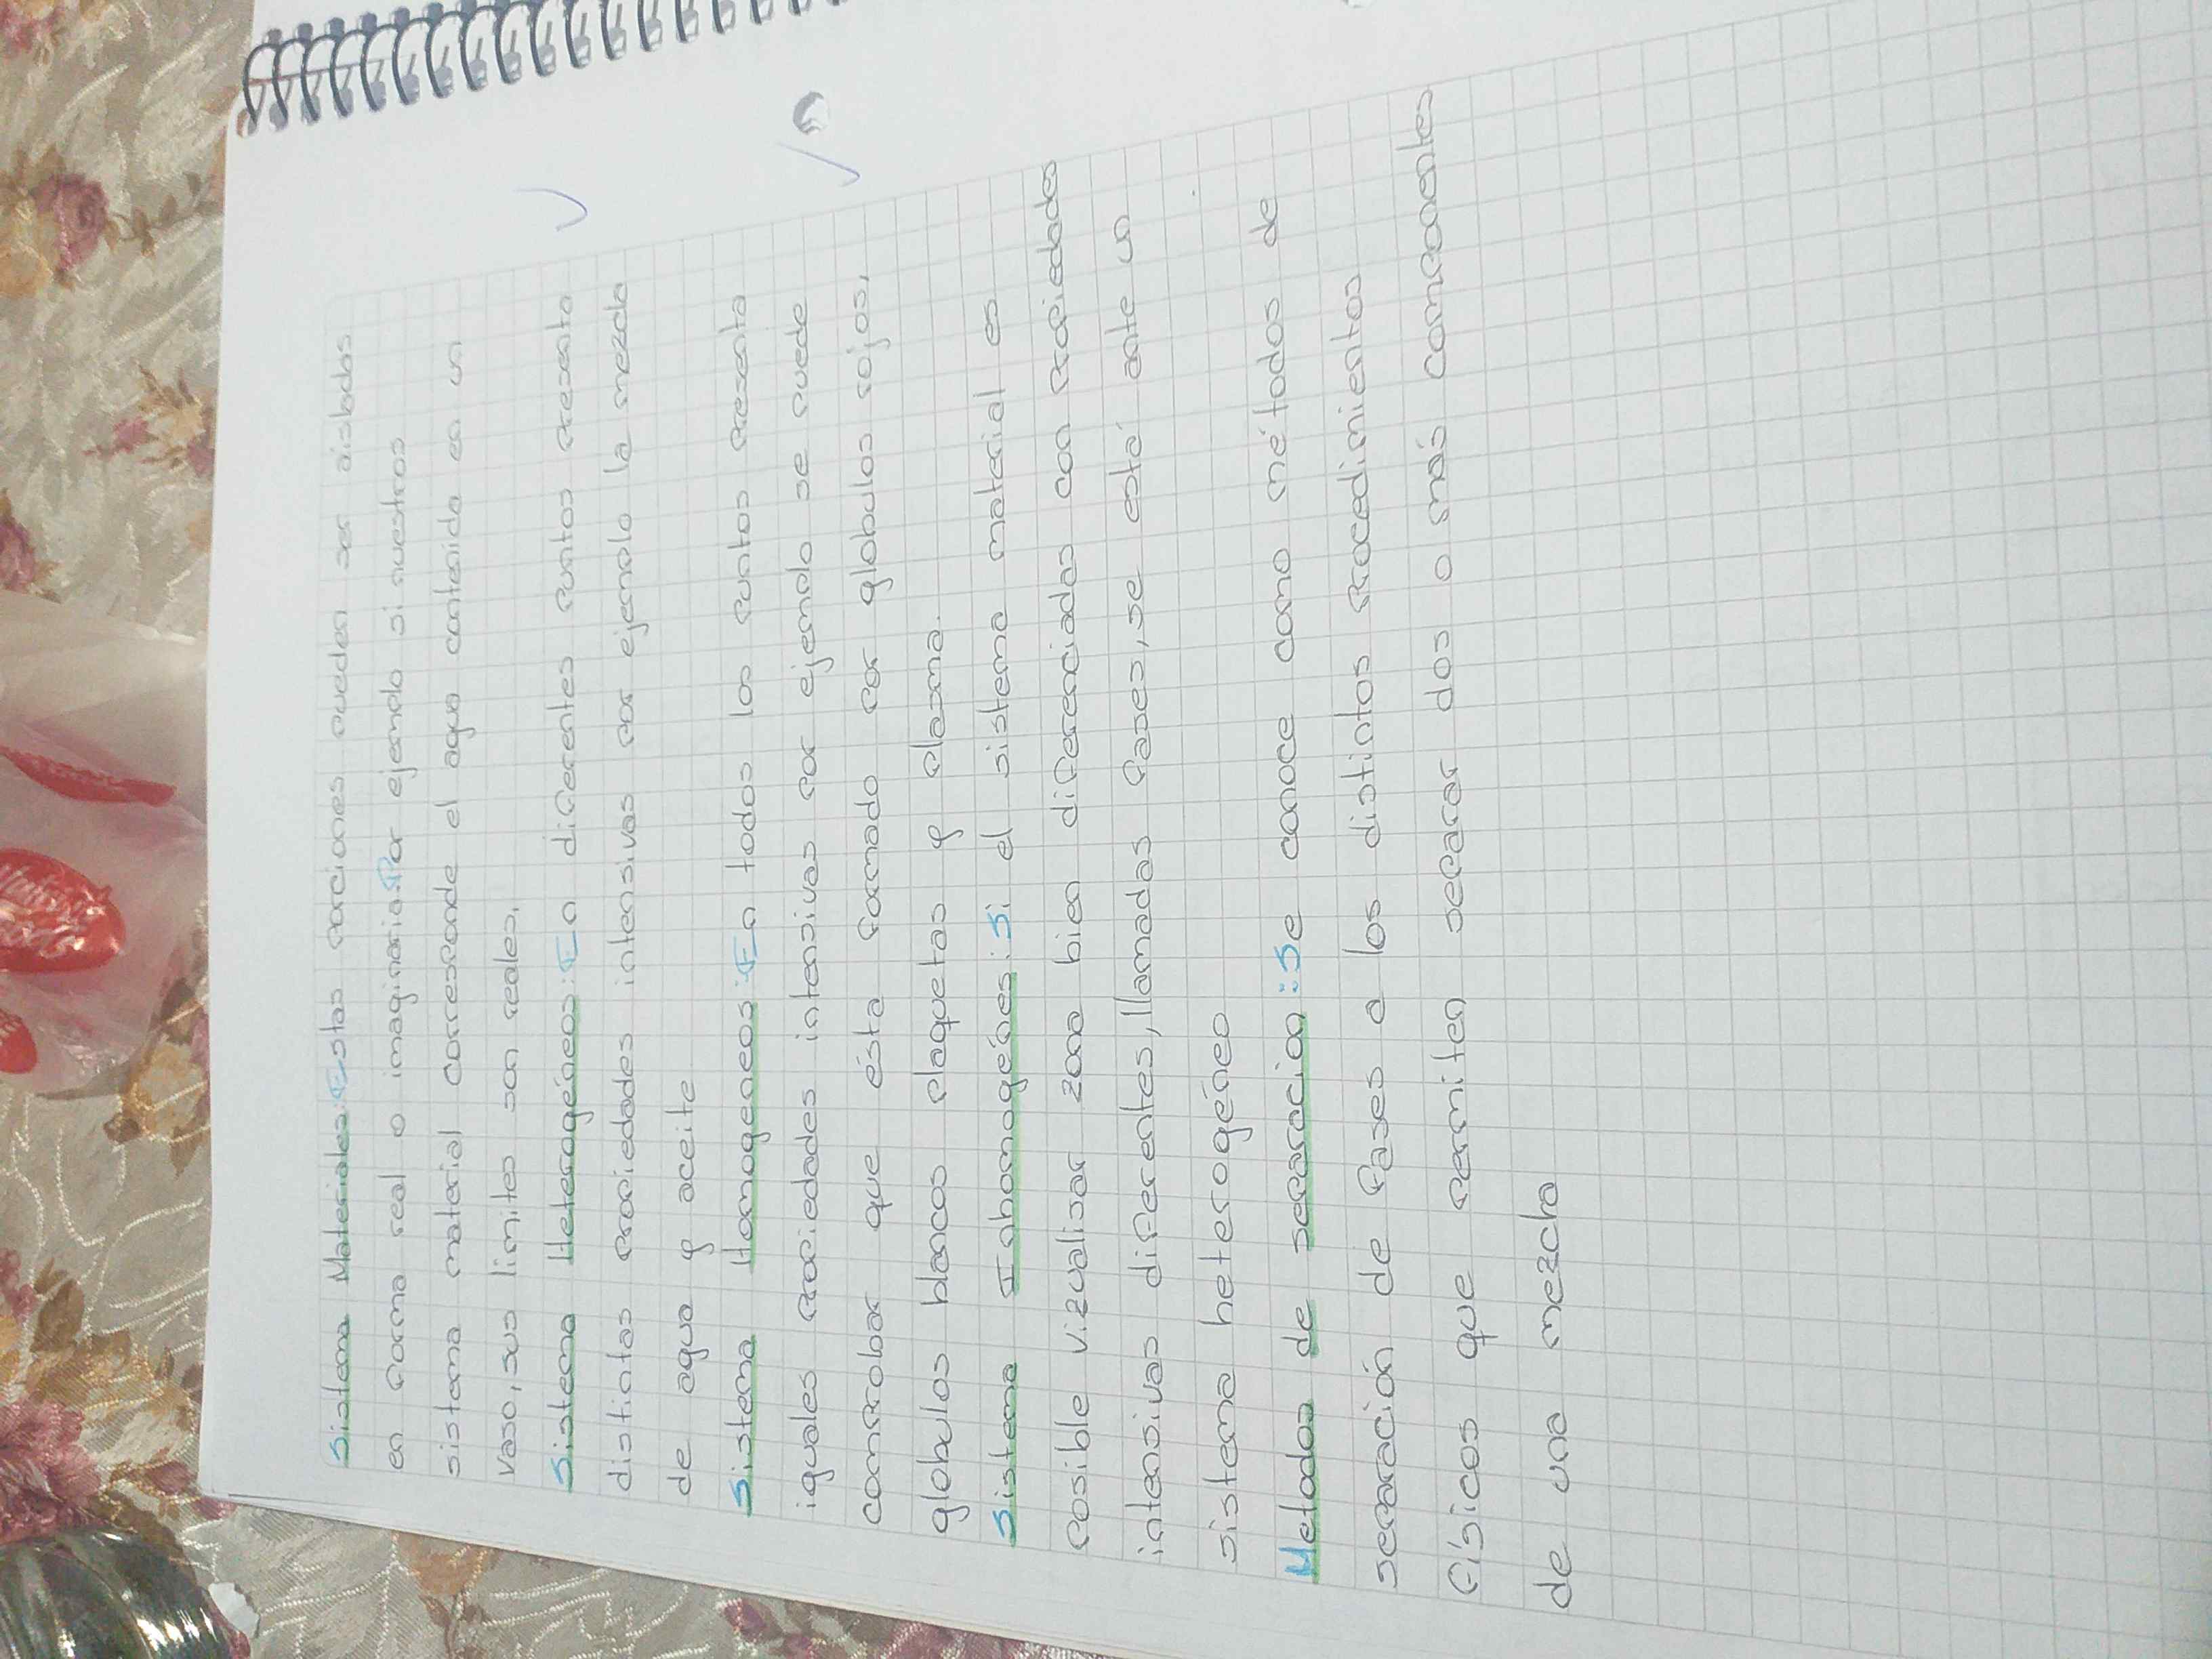 Sistema Materiales: Estas porciones pueden ser aislados
en forma real o imaginaria. Por ejemplo si nuestros
sistema material corresponde el agua contenida en un
vaso, sus limites son reales.
Sistema Heterogéneos: En diferentes puntos presenta
distintas propiedades intensivas por ejemplo la mezcla
de agua y aceite
Sistema Homogeneos: En todos los puntos presenta
iguales propiedades intensivas por ejemplo se puede
comprobar que ésta formado por globulos rojos,
globulos blancos plaquetas y plasma.
Sistema Inhomogénes: Si el sistema material es
posible vizualisar zona bien diferenciadas con propiedades
intensivas diferentes, llamadas fases, se está ante un
sistema heterogéneo
Metodos de separacion: Se conoce como métodos de
separación de fases a los distintos procedimientos
físicos que permiten separar dos o más componentes
de una mezcla